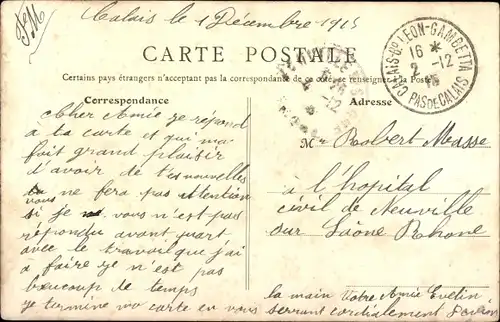 F M
Calais le 1 Décembre 1915
CARTE POSTALE
Certains pays étrangers n'acceptent pas la correspondance de ce côté, se renseigner à la Poste
Correspondance
Adresse
CALAIS-Bd LEON-GAMBETTA
16 *
2 -12
15
PAS DE CALAIS
Cher Amie je répond
a ta carte et qui ma
fait grand plaisir
d'avoir de tes nouvelles
vous ne fera pas attention
si je vous n'est pas
répondu avant part
avec le travail que j'ai
a faire je n'est pas
beaucoup de temps
je termine ma carte en vous
la main Votre Amie Evelin
serrant cordialement
Mr Robert Masse
à l'hopital
civil de Neuville
sur Saone Rhone